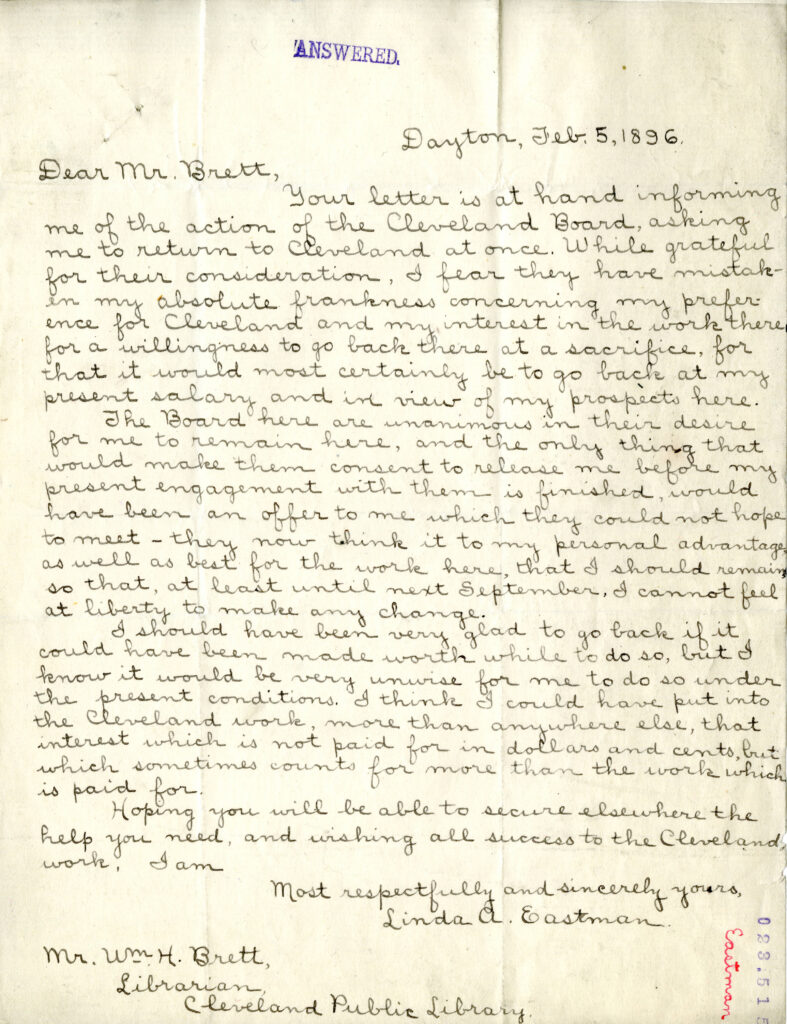 ANSWERED.
Dayton, Feb. 5, 1896.
Dear Mr. Brett,
Your letter is at hand informing
me of the action of the Cleveland Board, asking
me to return to Cleveland at once. While grateful
for their consideration, I fear they have mistak-
en my absolute frankness concerning my prefer-
ence for Cleveland and my interest in the work there
for a willingness to go back there at a sacrifice, for
that it would most certainly be to go back at my
present salary and in view of my prospects here.
The Board here are unanimous in their desire
for me to remain here, and the only thing that
would make them consent to release me before my
present engagement with them is finished, would
have been an offer to me which they could not hope
to meet - they now think it to my personal advantage,
as well as best for the work here, that I should remain,
so that, at least until next September, I cannot feel
at liberty to make any change.
I should have been very glad to go back if it
could have been made worth while to do so, but I
know it would be very unwise for me to do so under
the present conditions. I think I could have put into
the Cleveland work, more than anywhere else, that
interest which is not paid for in dollars and cents, but
which sometimes counts for more than the work which
is paid for.
Hoping you will be able to secure elsewhere the
help you need, and wishing all success to the Cleveland
work, I am
Most respectfully and sincerely yours,
Linda A. Eastman.
Mr. Wm. H. Brett,
Librarian,
Cleveland Public Library.
023.515
Eastman